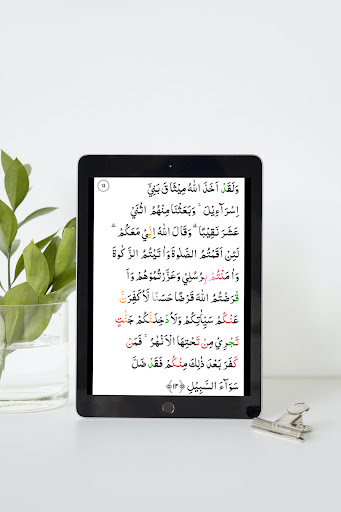 ١٢
وَلَقَدْ اَخَذَ اللّٰهُ مِيْثَاقَ بَنِيْٓ
اِسْرَآءِيْلَ ۚ وَبَعَثْنَا مِنْهُمُ اثْنَيْ
عَشَرَ نَقِيْبًا ۗ وَقَالَ اللّٰهُ اِنِّيْ مَعَكُمْ ۗ
لَئِنْ اَقَمْتُمُ الصَّلٰوةَ وَاٰتَيْتُمُ الزَّكٰوةَ
وَاٰمَنْتُمْ بِرُسُلِيْ وَعَزَّرْتُمُوْهُمْ وَاَ
قْرَضْتُمُ اللّٰهَ قَرْضًا حَسَنًا لَّاُكَفِّرَنَّ
عَنْكُمْ سَيِّاٰتِكُمْ وَلَاُدْخِلَنَّكُمْ جَنّٰتٍ
تَجْرِيْ مِنْ تَحْتِهَا الْاَنْهٰرُ ۚ فَمَنْ
كَفَرَ بَعْدَ ذٰلِكَ مِنْكُمْ فَقَدْ ضَلَّ
سَوَآءَ السَّبِيْلِ ﴿١٢﴾